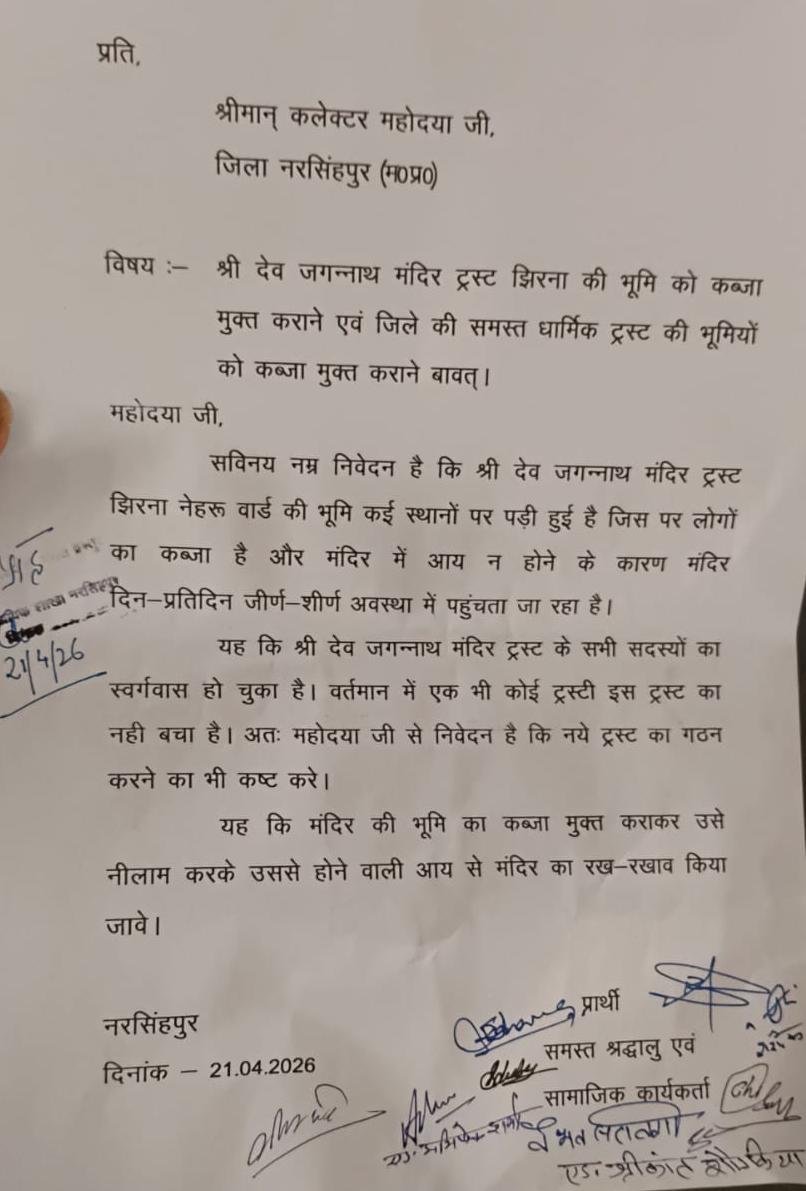 प्रति,
श्रीमान् कलेक्टर महोदया जी,
जिला नरसिंहपुर (म0प्र0)
विषय :– श्री देव जगन्नाथ मंदिर ट्रस्ट झिरना की भूमि को कब्जा
मुक्त कराने एवं जिले की समस्त धार्मिक ट्रस्ट की भूमियों
को कब्जा मुक्त कराने बावत्।
महोदया जी,
सविनय नम्र निवेदन है कि श्री देव जगन्नाथ मंदिर ट्रस्ट
झिरना नेहरू वार्ड की भूमि कई स्थानों पर पड़ी हुई है जिस पर लोगों
का कब्जा है और मंदिर में आय न होने के कारण मंदिर
दिन–प्रतिदिन जीर्ण–शीर्ण अवस्था में पहुंचता जा रहा है।
शाखा नरसिंहपुर
21/4/26
यह कि श्री देव जगन्नाथ मंदिर ट्रस्ट के सभी सदस्यों का
स्वर्गवास हो चुका है। वर्तमान में एक भी कोई ट्रस्टी इस ट्रस्ट का
नही बचा है। अतः महोदया जी से निवेदन है कि नये ट्रस्ट का गठन
करने का भी कष्ट करे।
यह कि मंदिर की भूमि का कब्जा मुक्त कराकर उसे
नीलाम करके उससे होने वाली आय से मंदिर का रख–रखाव किया
जावे।
नरसिंहपुर
दिनांक – 21.04.2026
प्रार्थी
समस्त श्रद्धालु एवं
सामाजिक कार्यकर्ता
एड. श्रीकांत